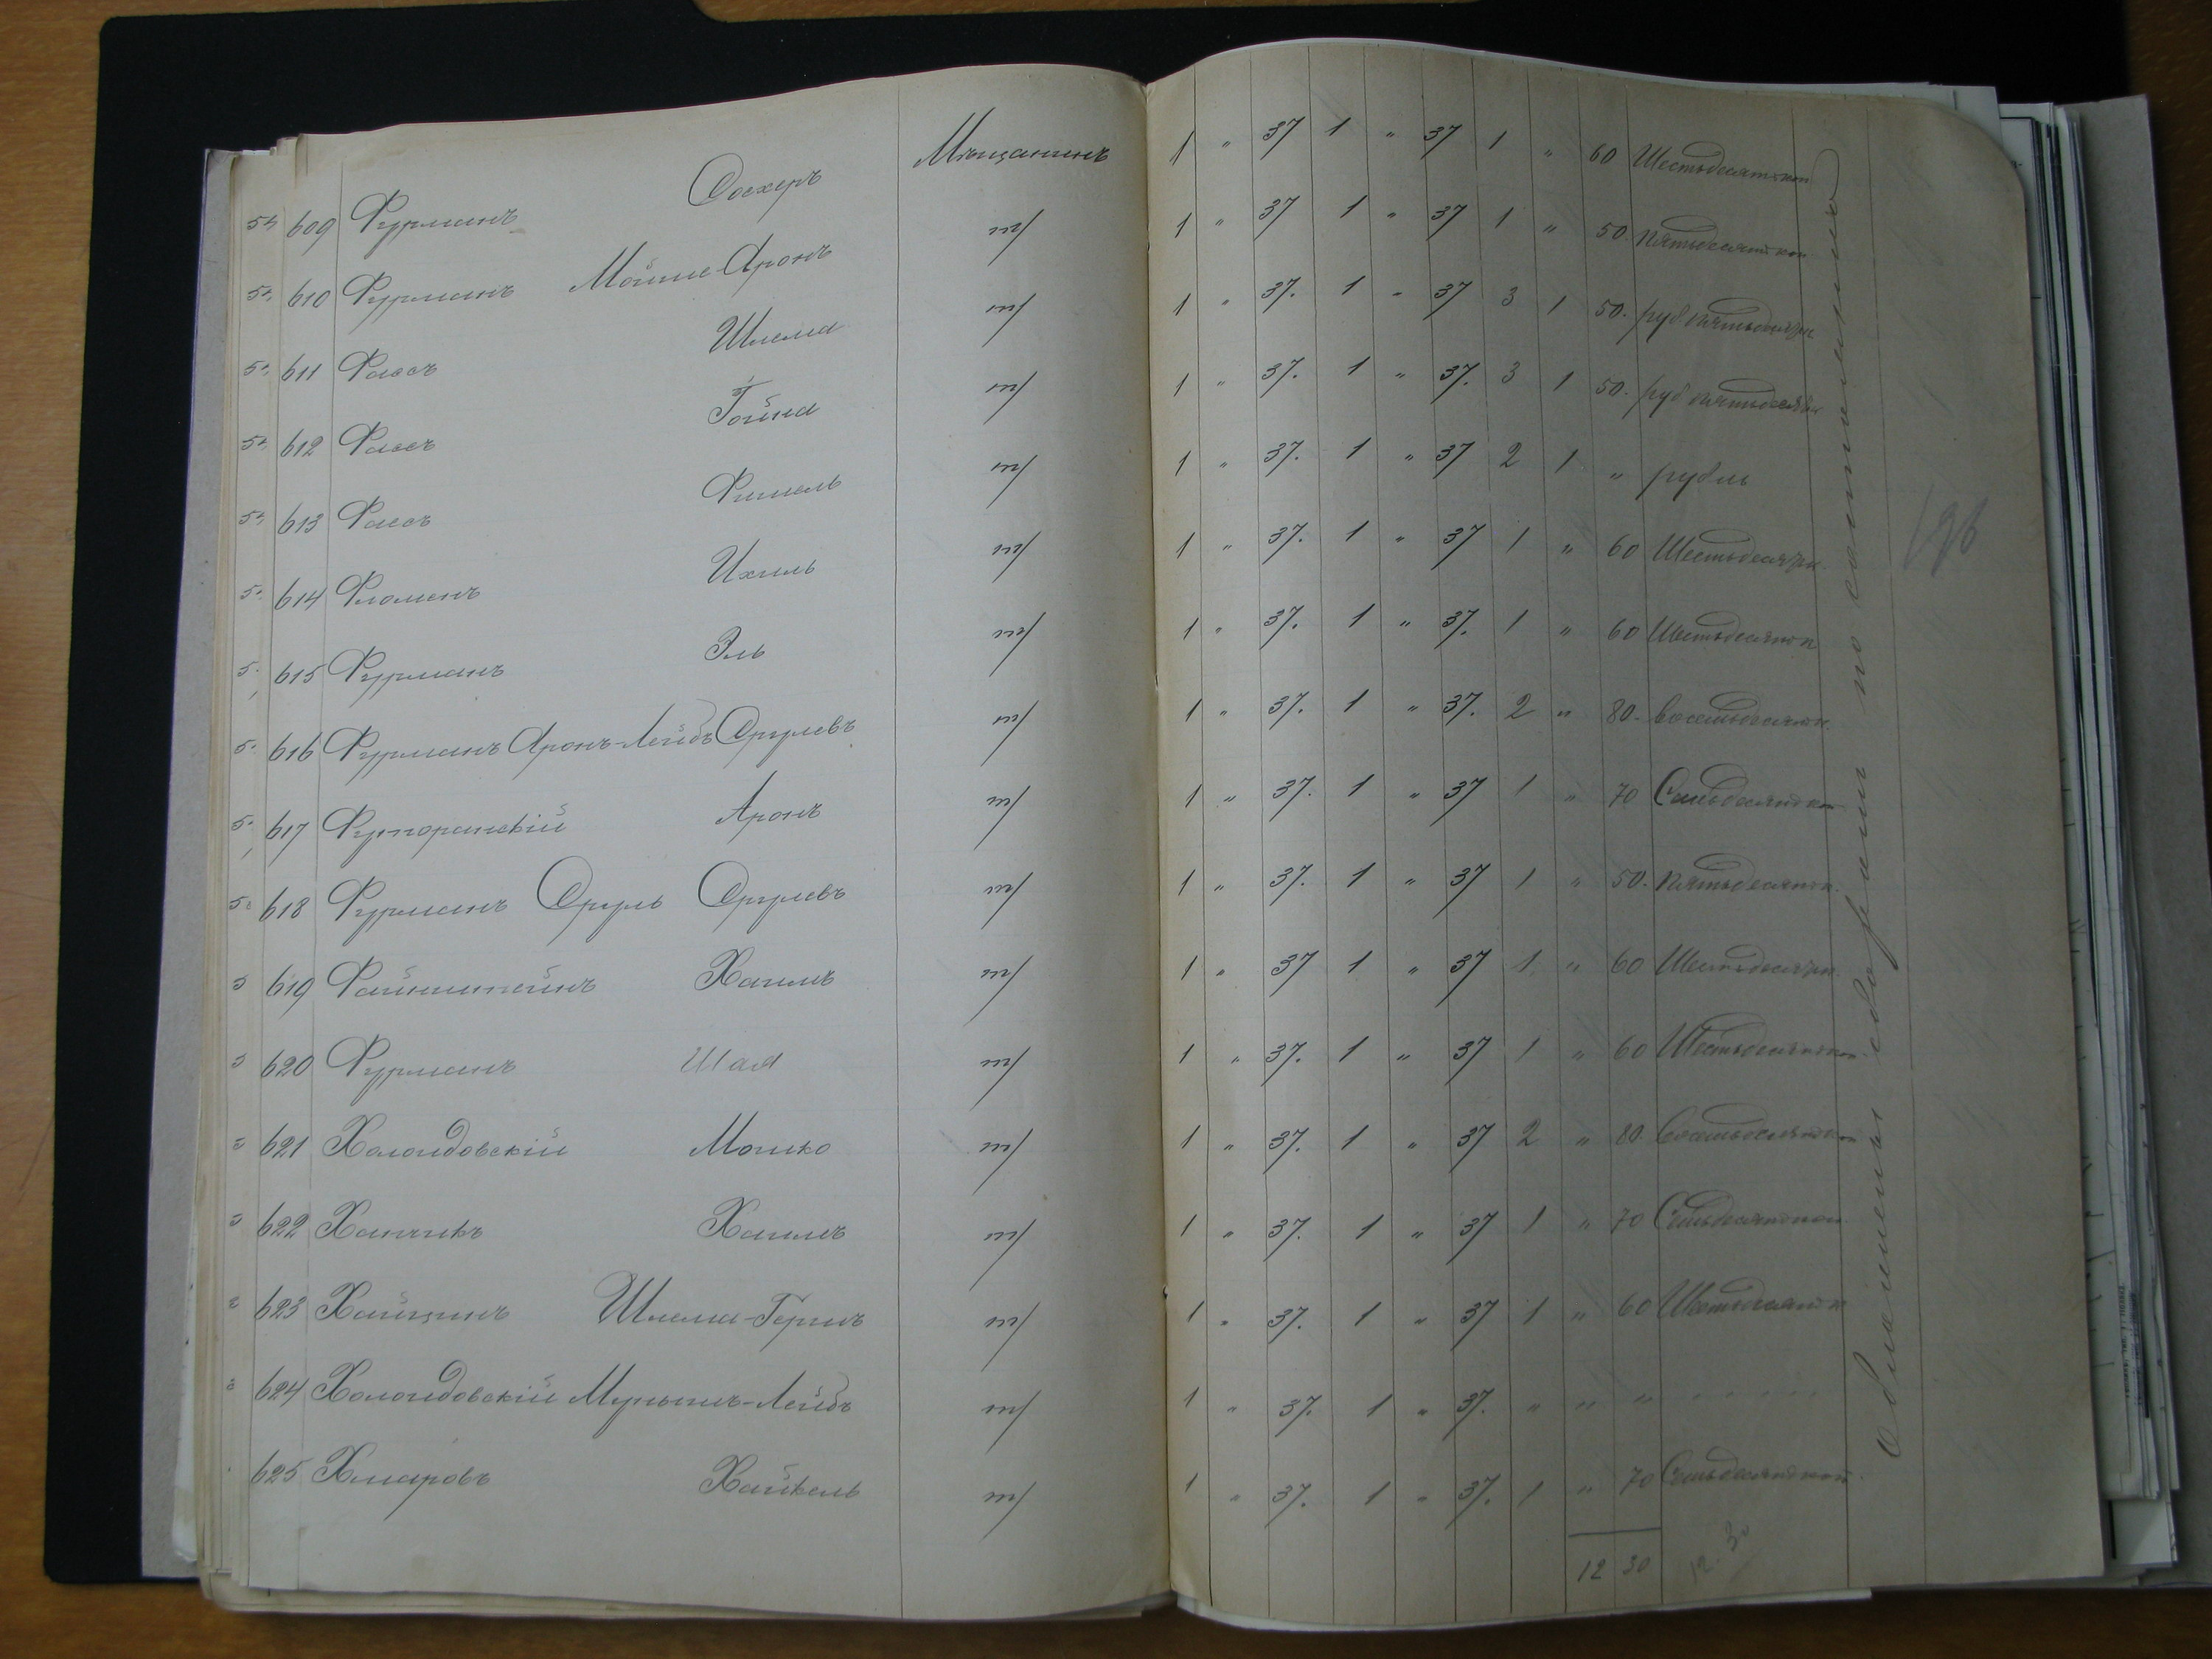 609 Фурманъ Сосхеръ Мѣщанинъ 1 " 37 1 " 37 1 " 60 Шестьдесят коп
610 Фурманъ Мойше-Аронъ т/ 1 " 37 1 " 37 1 " 50. Пятьдесят коп
611 Фассъ Шлема т/ 1 " 37. 1 " 37 3 1 50. руб пятьдесят к
612 Фассъ Гойна т/ 1 " 37. 1 " 37. 3 1 50. руб пятьдесят к
613 Фассъ Фишель т/ 1 " 37. 1 " 37 2 1 " рубль
614 Фломенъ Ихиль т/ 1 " 37. 1 " 37 1 " 60 Шестьдесят к
615 Фурманъ Эль т/ 1 " 37. 1 " 37. 1 " 60 Шестьдесят к
616 Фурманъ Аронъ-Лейбъ Срулевъ т/ 1 " 37. 1 " 37. 2 " 80. Восемьдесят к
617 Футоранскій Аронъ т/ 1 " 37. 1 " 37 1 " 70 Семьдесят коп
618 Фурманъ Сруль Срулевъ т/ 1 " 37. 1 " 37 1 " 50. Пятьдесят к.
619 Файнштейнъ Хаимъ т/ 1 " 37 1 " 37 1 " 60 Шестьдесят к
620 Фурманъ Шая т/ 1 " 37. 1 " 37 1 " 60 Шестьдесят коп
621 Холоидовскій Мошко т/ 1 " 37. 1 " 37 2 " 80 Восемьдесят коп
622 Ханчикъ Хаимъ т/ 1 " 37. 1 " 37 1 " 70 Семьдесят коп
623 Хайцинъ Шлема-Гершъ т/ 1 " 37. 1 " 37 1 " 60 Шестьдесят к
624 Холоидовскій Лейбъ т/ 1 " 37. 1 " 37. " " "
625 Хмаровъ Хайкель т/ 1 " 37. 1 " 37. 1 " 70 Семьдесят коп
12 30 12.30
по
196